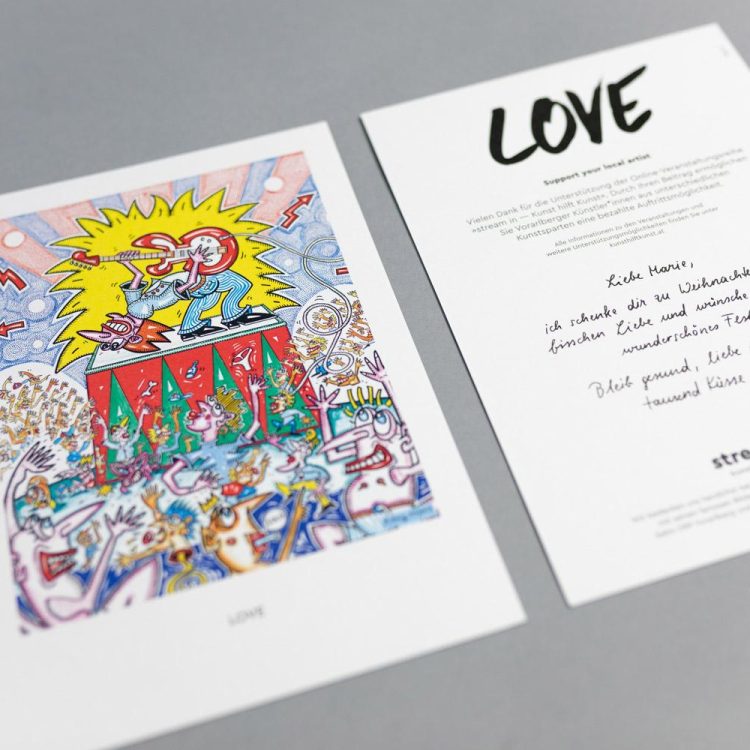 LOVE
LOVE
Support your local artist
Vielen Dank für die Unterstützung der Online-Veranstaltungsreihe
»stream in — Kunst hilft Kunst«. Durch Ihren Beitrag ermöglichen
Sie Vorarlberger Künstler*innen aus unterschiedlichen
Kunstsparten eine bezahlte Auftrittsmöglichkeit.
Alle Informationen zu den Veranstaltungen und
weitere Unterstützungsmöglichkeiten finden Sie unter
kunsthilftkunst.at
Liebe Marie,
ich schenke dir zu Weihnachte
bisschen Liebe und wünsche
wunderschönes Fest
Bleib gesund, liebe
tausend Küsse
stre